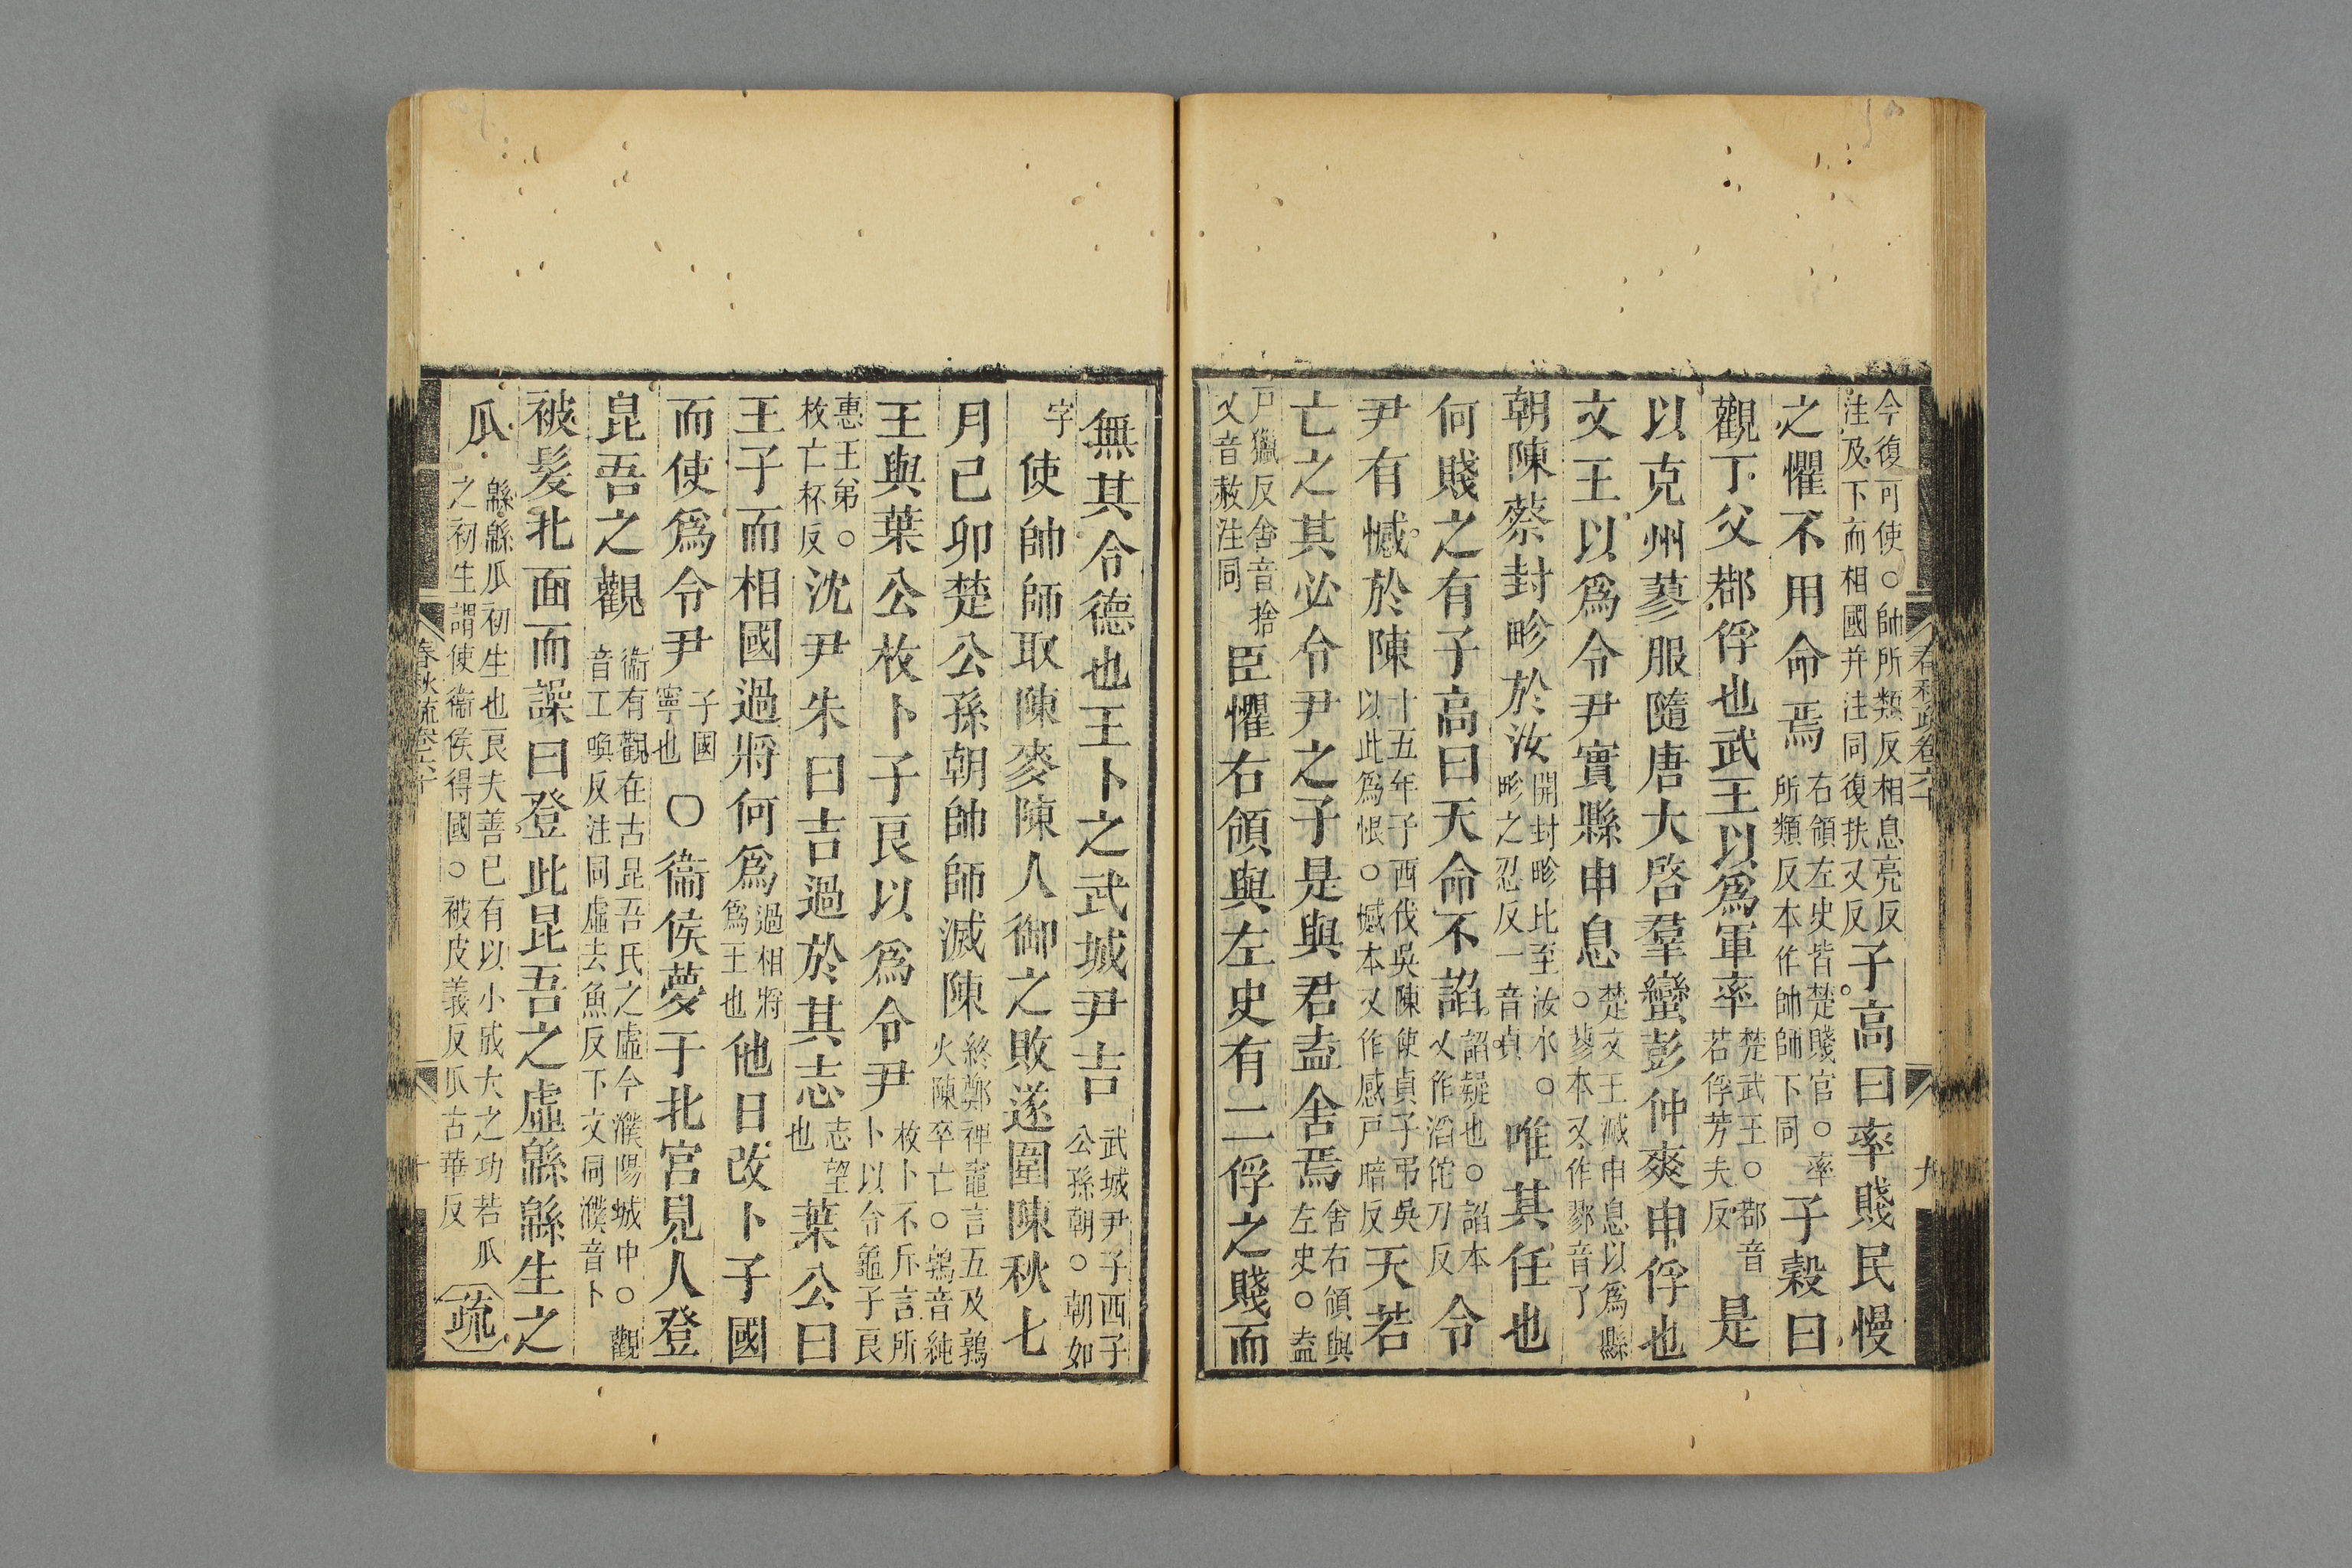 今復可使○帥所類反相息亮反
注及下而相國并注同復扶又反
子高曰率賤民慢
之懼不用命焉
右領左史皆楚賤官○率
所類反本作帥師下同
子穀曰
觀丁父鄀俘也武王以爲軍率
楚武王○鄀音
若俘芳夫反
是
以克州蓼服隨唐大啓羣蠻彭仲爽申俘也
文王以爲令尹實縣申息
楚文王滅申息以爲縣
○蓼本又作鄝音了
朝陳蔡封畛於汝
開封畛比至汝水○
畛之忍反一音真
唯其任也
何賤之有子高曰天命不謟
謟疑也○謟本
又作滔佗刀反
令
尹有憾於陳
十五年子西伐吳陳使貞子弔吳
以此爲恨○憾本又作感戸暗反
天若
亡之其必令尹之子是與君盍舍焉
舍右領與
左史○盍
戸獵反舍音捨
又音赦注同
臣懼右領與左史有二俘之賤而
春秋疏卷六十
九
無其令德也王卜之武城尹吉
武城尹子西子
公孫朝○朝如
字
使帥師取陳麥陳人御之敗遂圍陳秋七
月己卯楚公孫朝帥師滅陳
終鄭裨竈言五及鶉
火陳卒亡○鶉音純
王與葉公枚卜子良以爲令尹
枚卜不斥言所
卜以令龜子良
惠王弟○
枚亡杯反
沈尹朱曰吉過於其志
志望
也
葉公曰
王子而相國過將何爲
過相將
爲王也
他日改卜子國
而使爲令尹
子國
寧也
○衞侯夢于北宮見人登
昆吾之觀
衞有觀在古昆吾氏之虛今濮陽城中○觀
音工喚反注同虛去魚反下文同濮音卜
被髮北面而譟曰登此昆吾之虛緜緜生之
瓜
緜緜瓜初生也良夫善已有以小成大之功若瓜
之初生謂使衞侯得國○被皮義反瓜古華反
疏
春秋疏卷六十
十